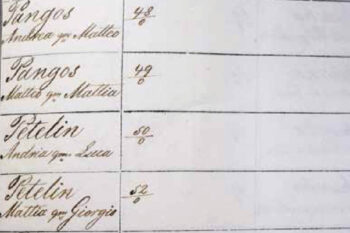 Pangos 48
Andrea qm Matteo 0
Pangos 49
Matteo qm Mattia 0
Petelin 50
Andria qm Luca 0
Petelin 52
Mattia qm Giorgio 0